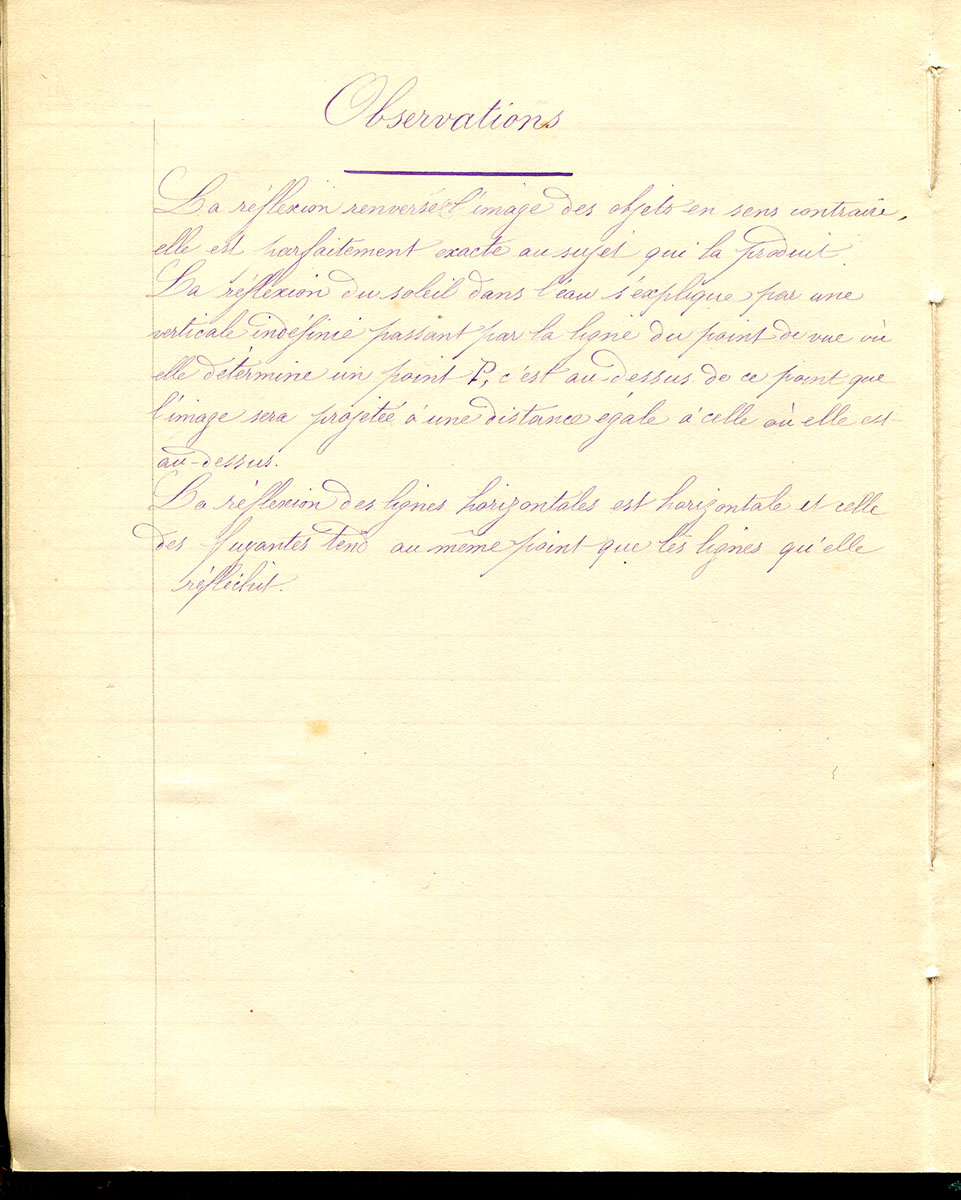 Observations
La réflexion renverse l'image des objets en sens contraire,
elle est parfaitement exacte au sujet qui la produit.
La réflexion du soleil dans l'eau s'explique par une
verticale indéfinie passant par la ligne du point de vue où
elle détermine un point P, c'est au-dessus de ce point que
l'image sera projetée à une distance égale à celle où elle est
au-dessus.
La réflexion des lignes horizontales est horizontale et celle
des fuyantes tend au même point que les lignes qu'elle
réfléchit.